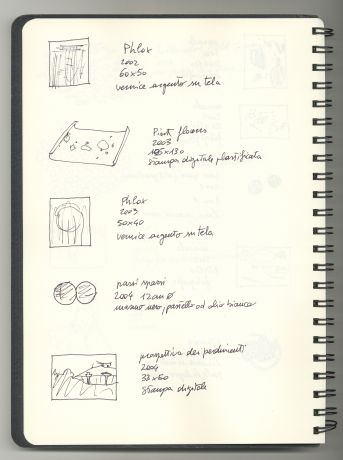 Phlox
2002
60x50
vernice argento su tela
Pink flowers
2003
x130
stampa digitale plastificata
Phlox
2003
50x40
vernice argento su tela
passi spassi
2004 12cm ø
marmo nero, pastello ad olio bianco
prospettiva dei perdimenti
2004
33x50
stampa digitale